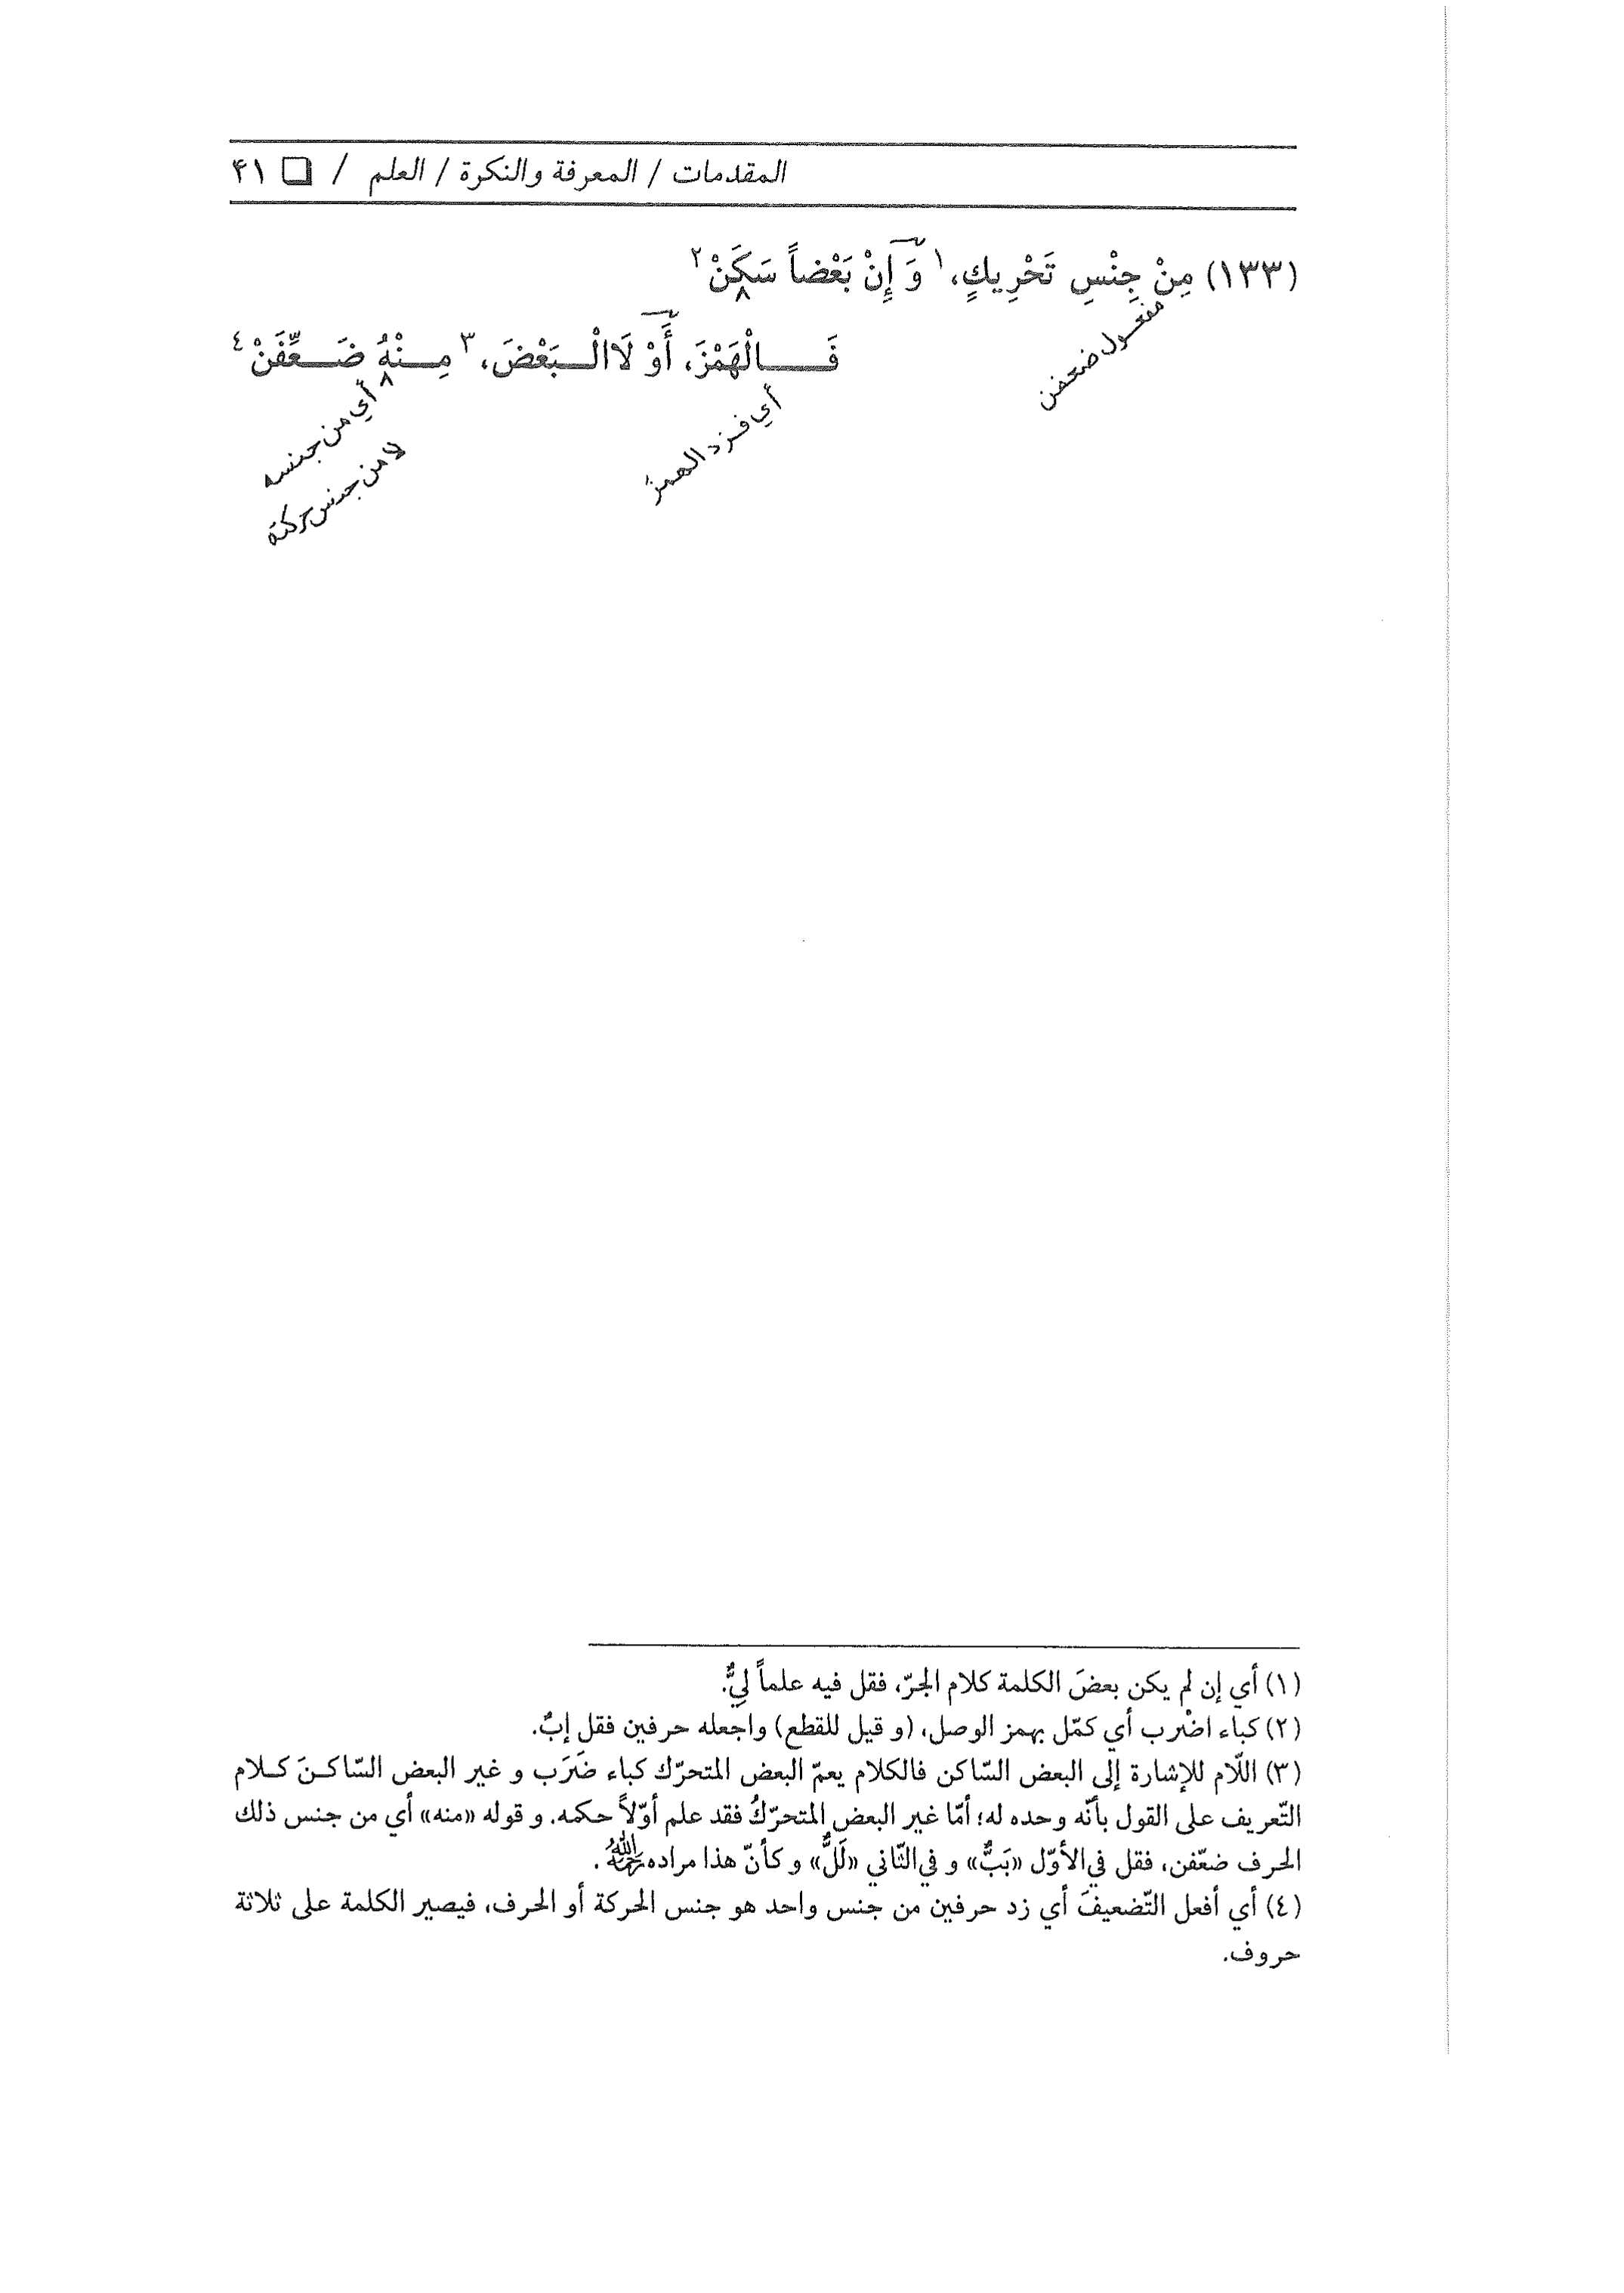 المقدمات / المعرفة والنكرة / العلم / □ ۴۱
(١٣٣) مِنْ جِنْسِ تَحْرِيكٍ،١ وَ إِنْ بَعْضاً سَكَنْ٢
فَـالْهَمْزَ، أَوْ لَاالْـبَعْضَ،٣ مِـنْهُ ضَـعِّفَنْ٤
مفعول ضعفن
أي فزد الهمز
أي من جنسه
لا من جنس حركته
(١) أي إن لم يكن بعضَ الكلمة كلام الجرّ، فقل فيه علماً لِيٌّ.
(٢) كباء اضْرب أي كمّل بهمز الوصل، (و قيل للقطع) واجعله حرفين فقل إبٌ.
(٣) اللّام للإشارة إلى البعض السّاكن فالكلام يعمّ البعض المتحرّك كباء ضَرَب و غير البعض السّاكـنَ كـلام
التّعريف على القول بأنّه وحده له؛ أمّا غير البعض المتحرّكُ فقد علم أوّلاً حكمه. و قوله «منه» أي من جنس ذلك
الحرف ضعّفن، فقل في الأوّل «بَبٌّ» و في الثّاني «لَلٌّ» و كأنّ هذا مراده رحمه الله.
(٤) أي أفعل التّضعيفَ أي زد حرفين من جنس واحد هو جنس الحركة أو الحرف، فيصير الكلمة على ثلاثة
حروف.